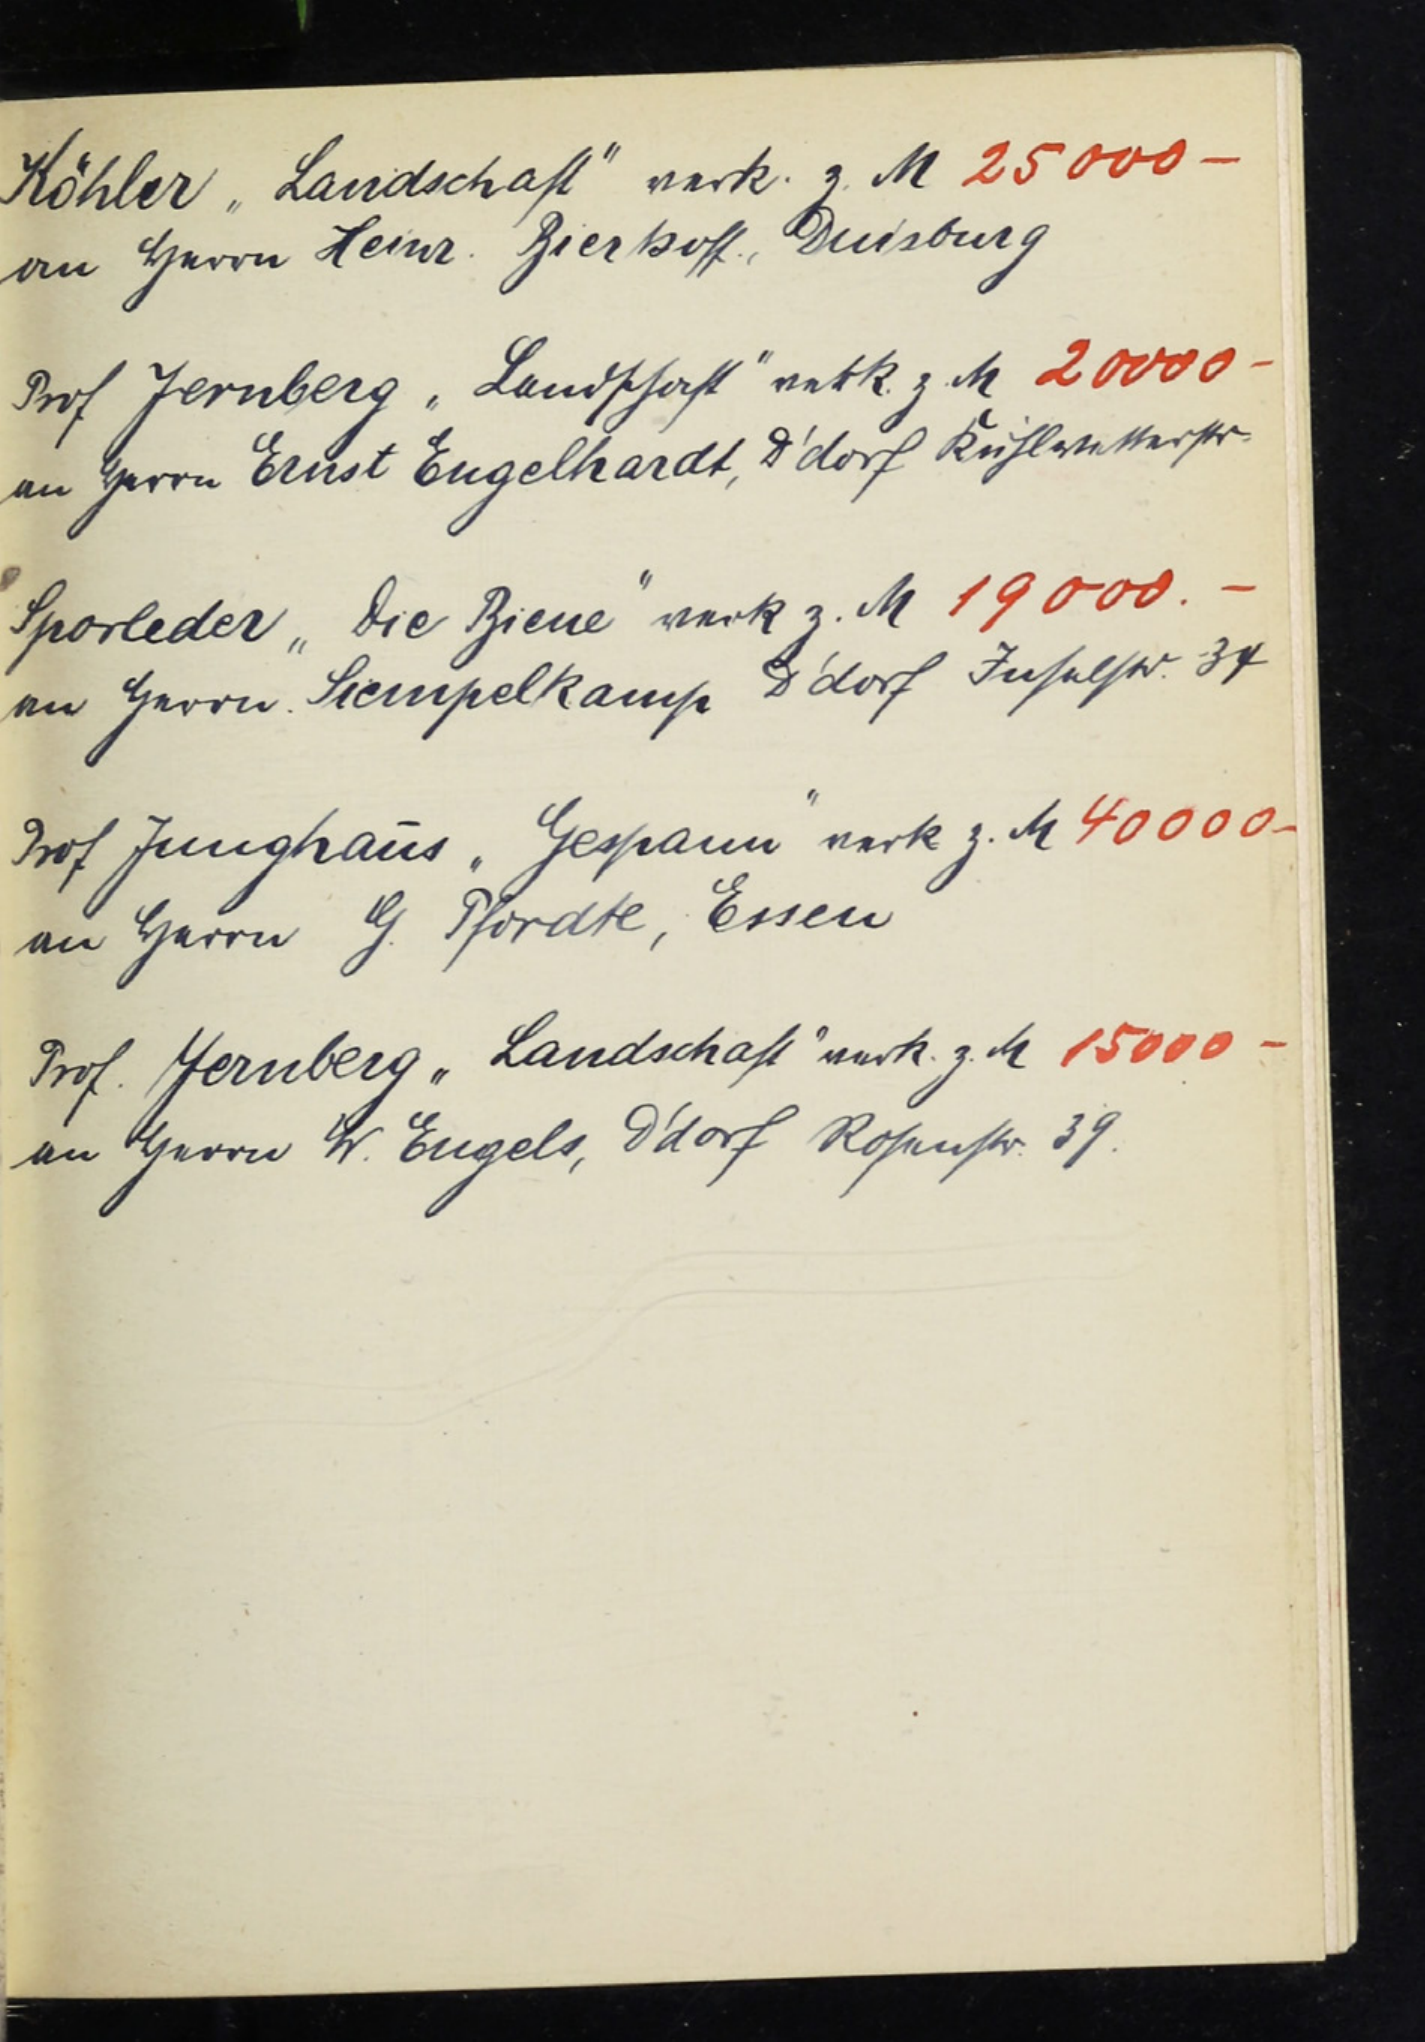 Köhler „Landschaft" verk. z. M 25000 –
an Herrn Heinr. Bierhoff, Duisburg
Prof Jernberg „Landschaft" verk. z. M 20000 –
an Herrn Ernst Engelhardt, D'dorf Kühlwetterstr.
Sporleder „Die Biene" verk z. M 19000. –
an Herrn. Siempelkamp D'dorf Inselstr. 34
Prof Junghans „Gespann" verk z. M 40000 –
an Herrn G. Pfordte, Essen
Prof. Jernberg „Landschaft" verk. z. M 15000 –
an Herrn W. Engels, D'dorf Rosenstr. 39.